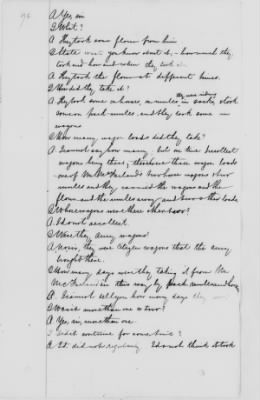 A Yes, sir
Q What?
A They took some flour from him
Q State what you know about it, - how much they
took and how and when they took it.
A They took the flour at different times.
Q How did they take it?
A They took some on horses, on mules in sacks, & took
some on pack mules, and they took some in
wagons
Q How many wagon loads did they take?
A I cannot say how many, but on time I recollect
wagons being there, & there were three wagon loads
one of Mr. McFarland's two horse wagons & his
mules and they carried the wagons and the
flour and the mules away and two other loads
Q Whose wagons were these other two?
A I do not recollect.
Q Were they Army wagons?
A No sir, they were Citizen wagons that the army
brought there.
Q How many days were they taking it from Mr.
McFarland in this way by pack mules and
A I cannot tell you how many days they
Q Was it more than one or two?
A Yes, sir, more than one
Q Did it continue for some time?
A It did not regularly I do not think it took